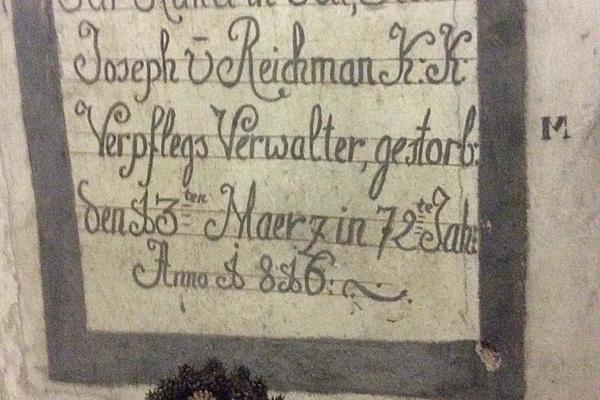 Joseph v̄ Reichman K: K
Verpflegs Verwalter, gestorb:
den 13ten Maerz in 72te Jah:
Anno 1816:
M